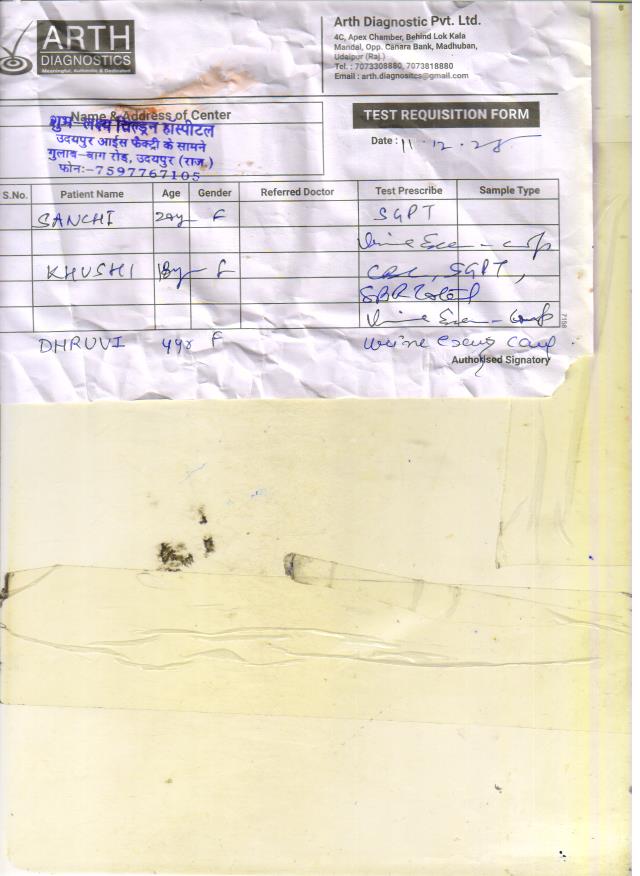 ARTH
DIAGNOSTICS
Meaningful, Authentic & Dedicated
Arth Diagnostic Pvt. Ltd.
4C, Apex Chamber, Behind Lok Kala
Mandal, Opp. Canara Bank, Madhuban,
Udaipur (Raj.)
Tel. : 7073308880, 7073818880
Email : arth.diagnositcs@gmail.com
Name & Address of Center
शुभ लक्ष्य चिल्ड्रन हास्पीटल
उदयपुर आईस फैक्ट्री के सामने
गुलाब-बाग रोड, उदयपुर (राज.)
फोनः-7597767105
TEST REQUISITION FORM
Date : 11.12.25
S.No. Patient Name Age Gender Referred Doctor Test Prescribe Sample Type
SANCHI F SGPT
Urine
KHUSHI 18y F CBC, SGPT,
SBR Total
Urine
DHRUVI 4yr F urine
7198
Authorised Signatory